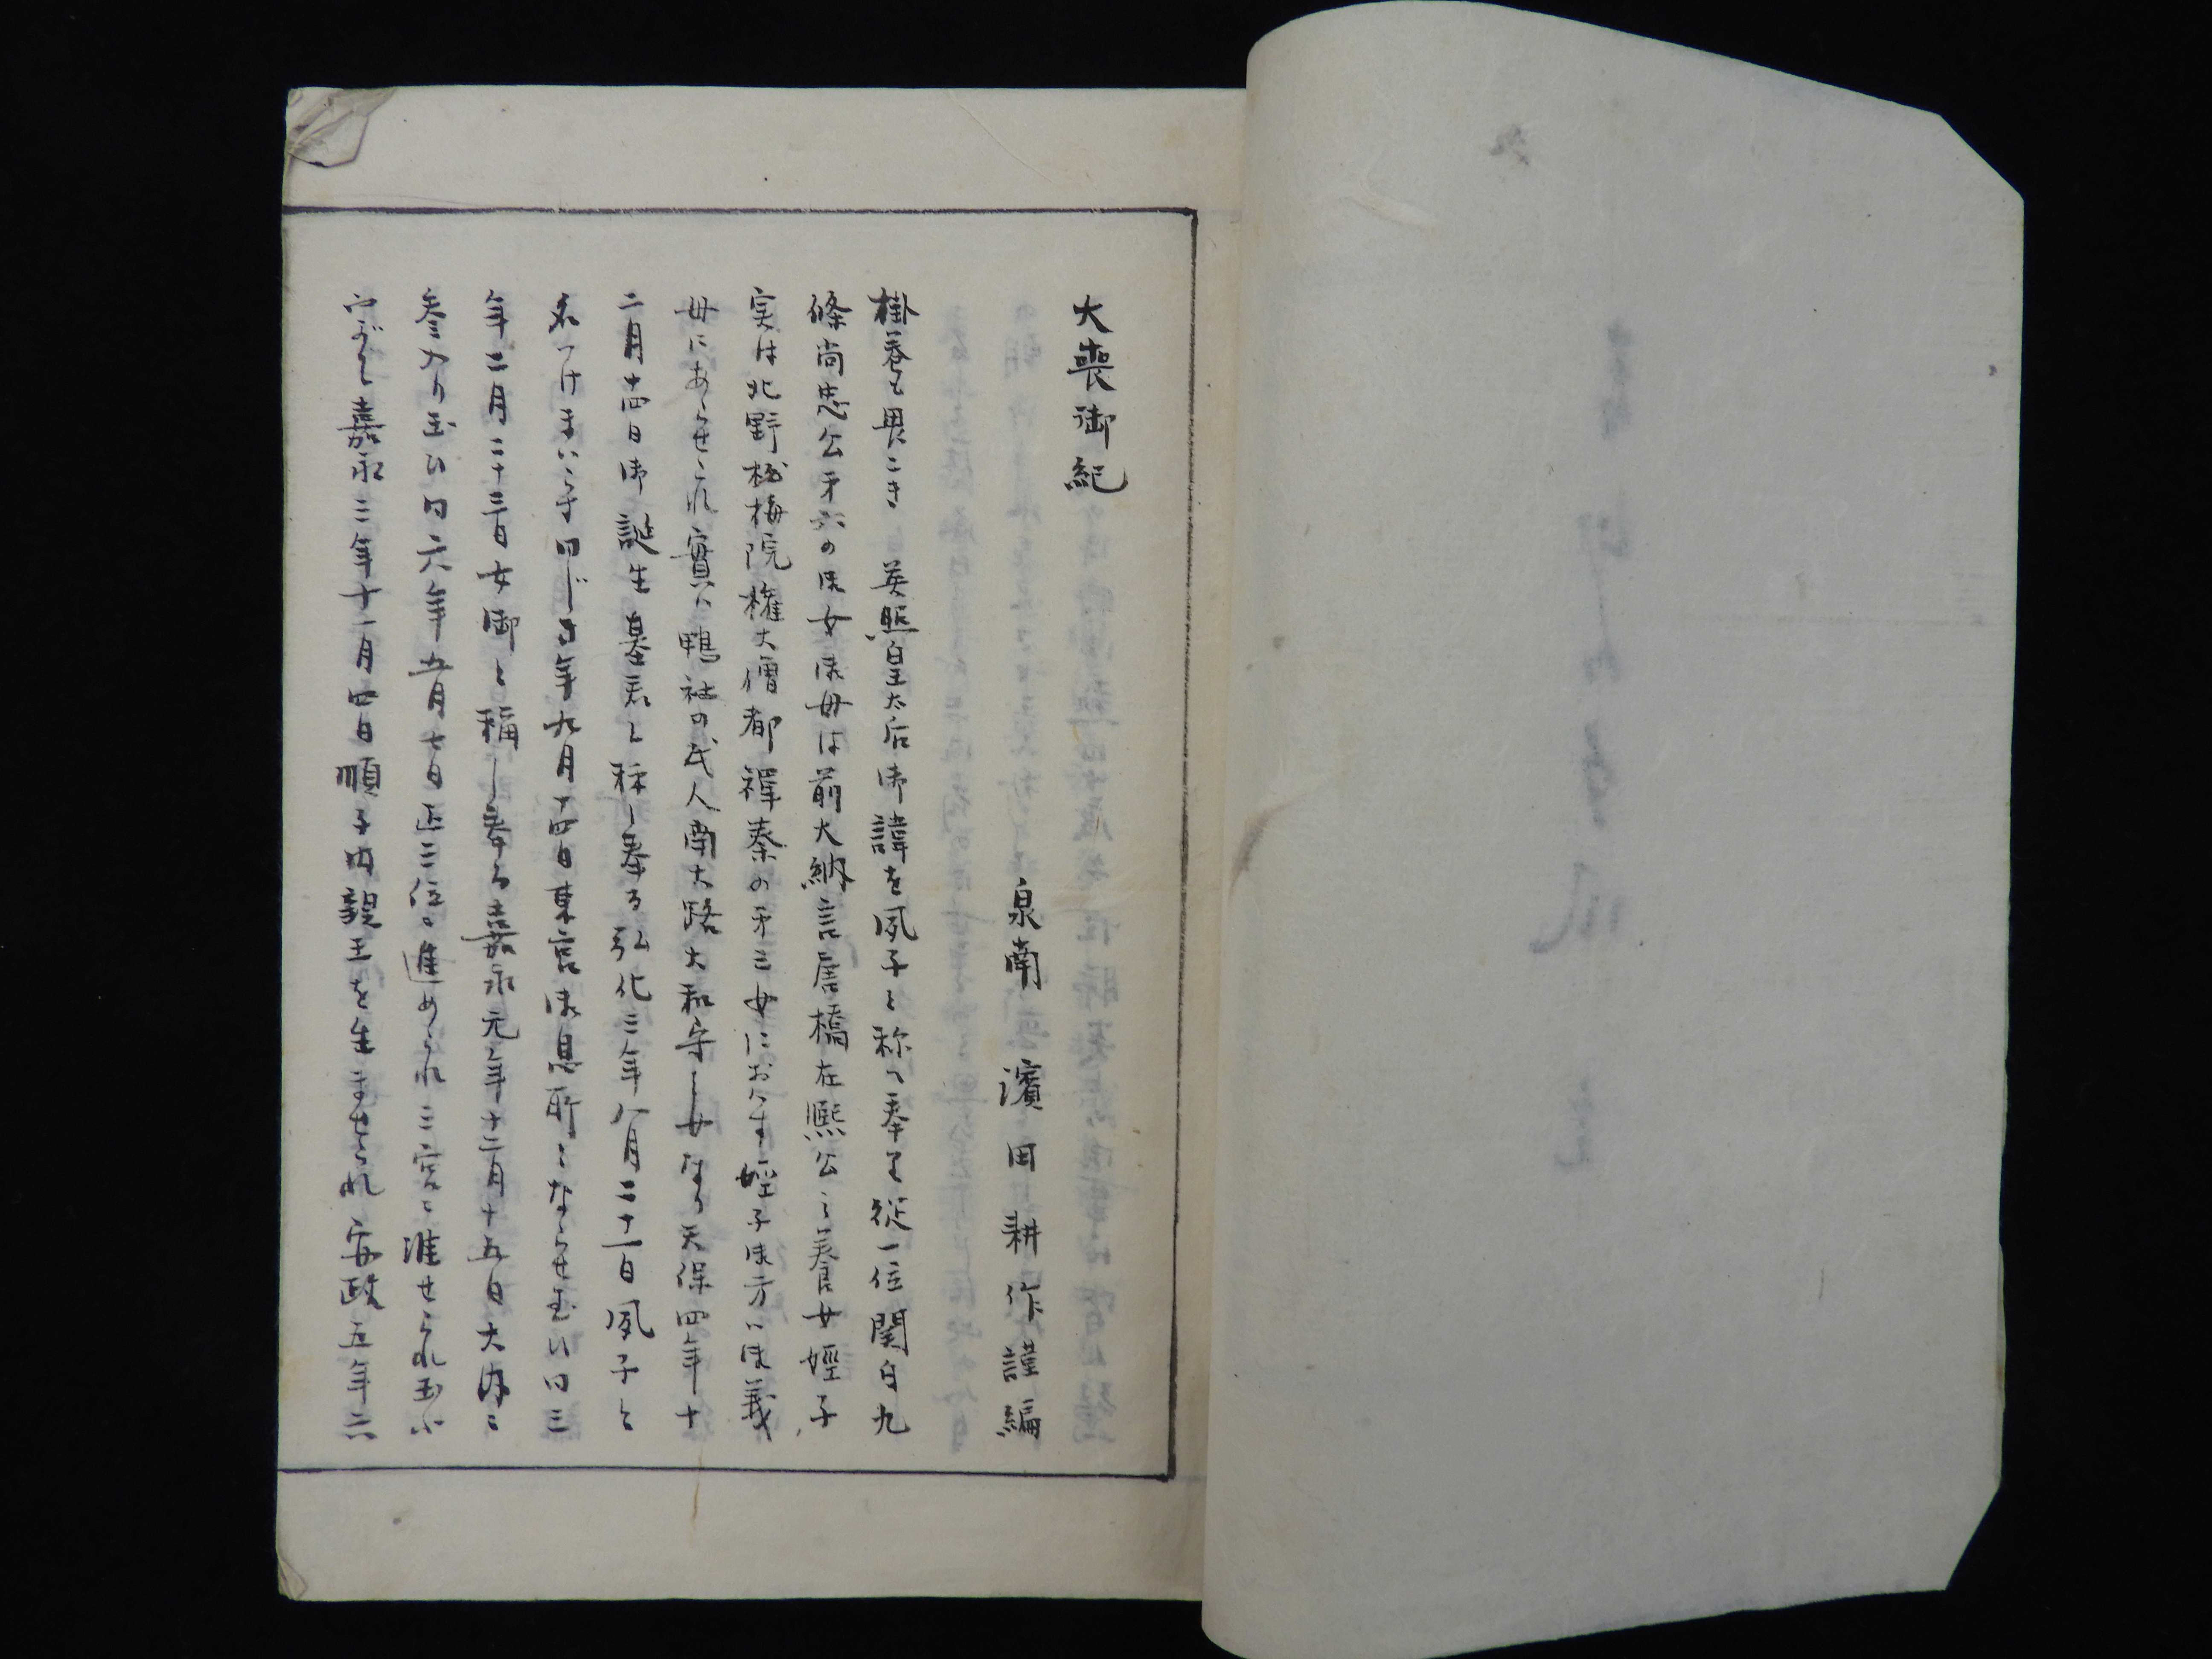 大喪御紀
泉南 濱田耕作謹編
掛巻も畏こき 英照皇太后御諱を夙子と称へ奉る従一位関白九
條尚忠公第六の御女御母は前大納言唐橋在熙公之養女姪子
実は北野松梅院権大僧都禅秦の第三女におはす姪子御方ハ御義
母にあらせられ實ハ鴨社の氏人南大路大和守し女なり天保四年十
二月十四日御誕生基君と称し奉る弘化二年八月二十一日夙子と
名つけまいらす同じき年九月十四日東宮御息所とならせ玉ひ同三
年二月二十三日女御と稱し奉る嘉永元年十二月十五日大内に
参入り玉ひ同六年五月七日正三位に進められ三宮に准せられ玉ふ
これより嘉永三年十一月四日順子内親王を生ませられ安政五年六